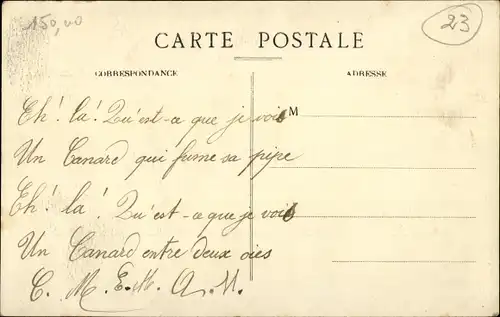 150,00
23
CARTE POSTALE
CORRESPONDANCE
ADRESSE
M
Eh! là! Qu'est-ce que je vois
Un Canard qui fume sa pipe
Eh! là! Qu'est-ce que je vois
Un Canard entre deux oies
C. M. E. M. A. M.